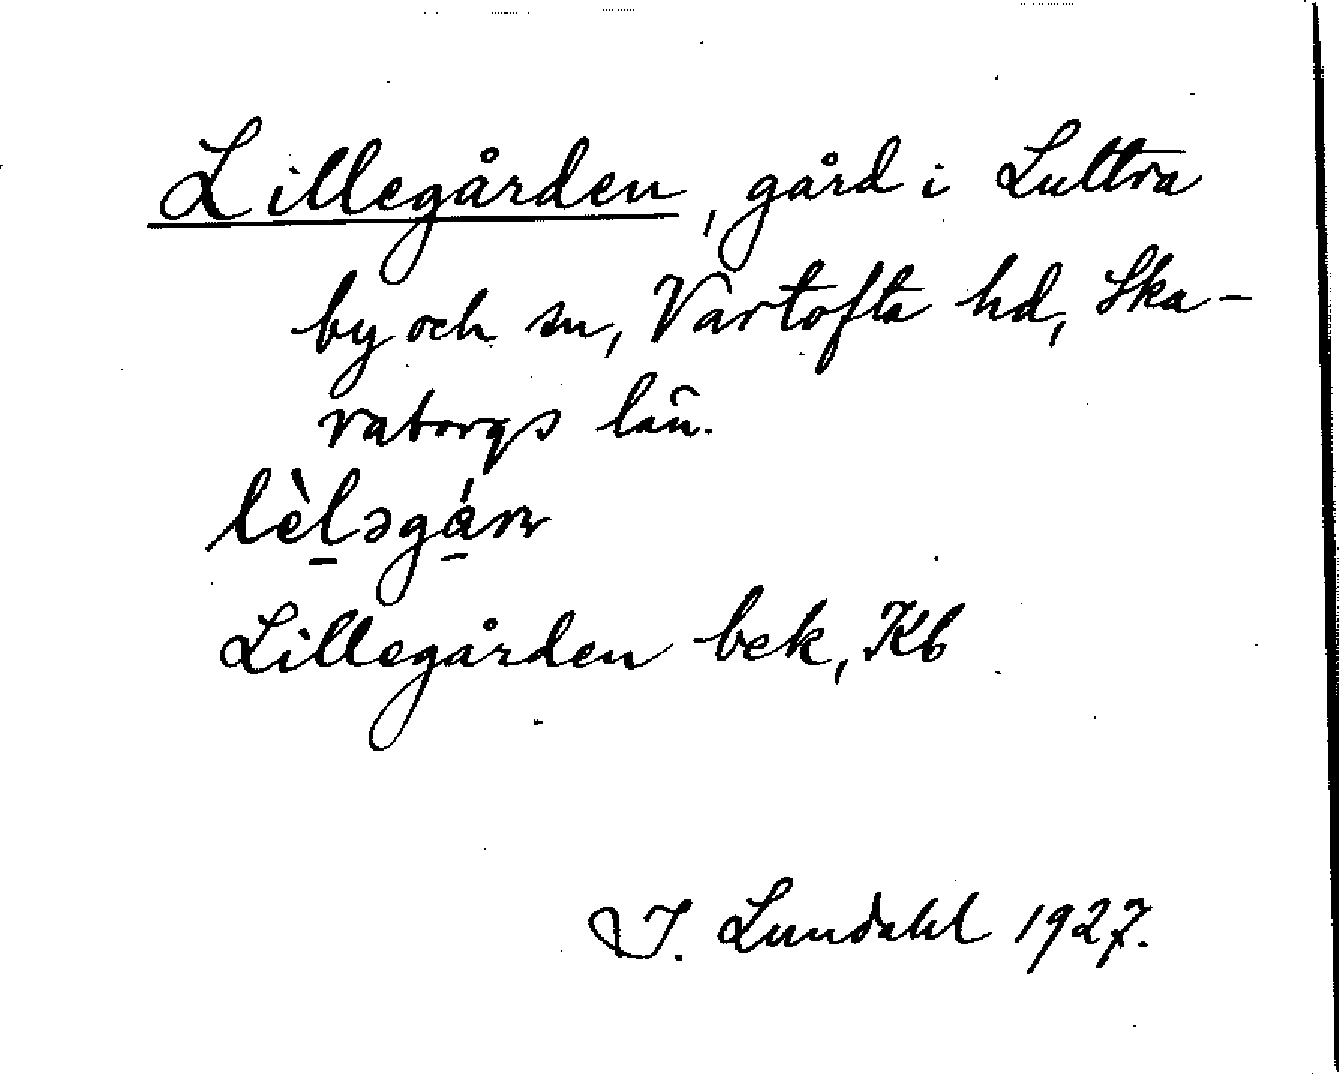 Lillegården, gård i Luttra
by och sn, Vartofta hd, Ska-
raborgs län.
lèl̠əgá̠ɳ
Lillegården bek, Kb
I. Lundahl 1927.